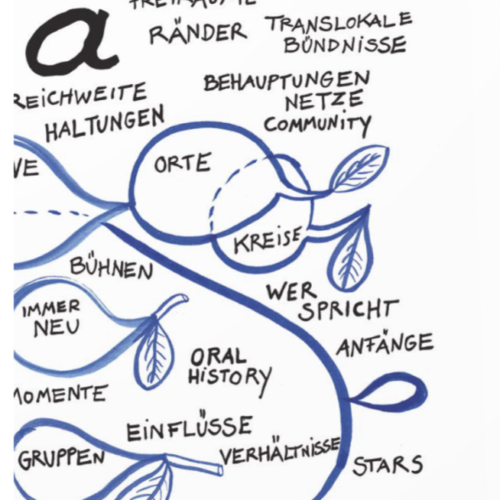 a
FREIRÄUME
RÄNDER
TRANSLOKALE
BÜNDNISSE
REICHWEITE
HALTUNGEN
BEHAUPTUNGEN
NETZE
COMMUNITY
ORTE
KREISE
BÜHNEN
WER
SPRICHT
IMMER
NEU
ANFÄNGE
ORAL
HISTORY
MOMENTE
EINFLÜSSE
GRUPPEN
VERHÄLTNISSE
STARS